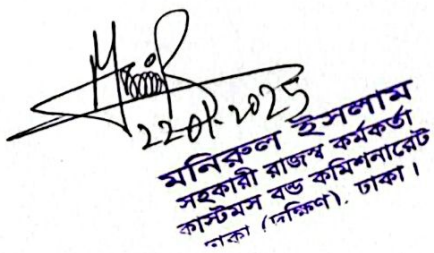 22-01-2025
মনিরুল ইসলাম
সহকারী রাজস্ব কর্মকর্তা
কাস্টমস বন্ড কমিশনারেট
ঢাকা (দক্ষিণ), ঢাকা।